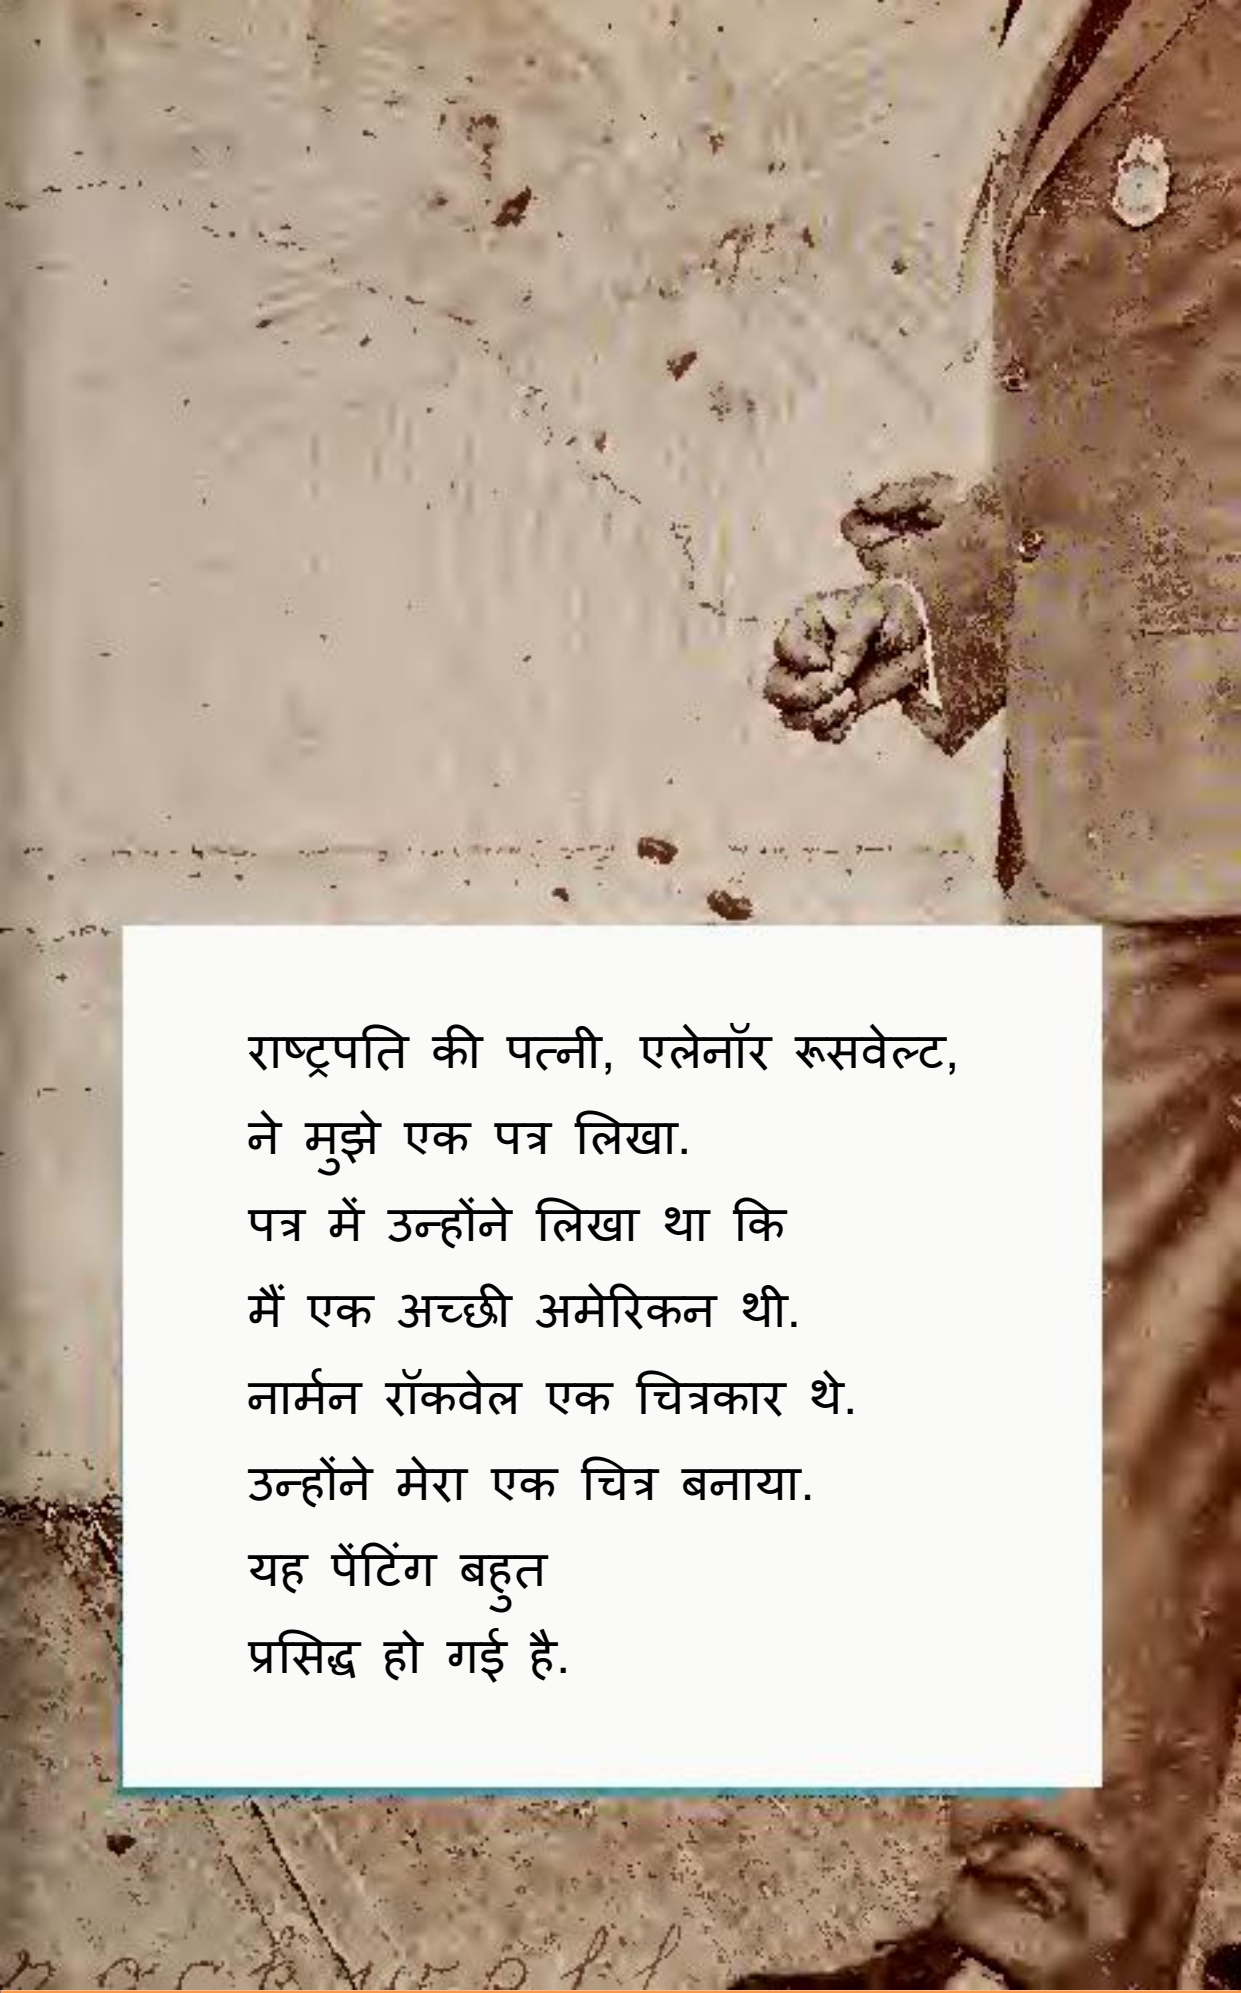 राष्ट्रपति की पत्नी, एलेनॉर रूसवेल्ट,
ने मुझे एक पत्र लिखा.
पत्र में उन्होंने लिखा था कि
मैं एक अच्छी अमेरिकन थी.
नार्मन रॉकवेल एक चित्रकार थे.
उन्होंने मेरा एक चित्र बनाया.
यह पेंटिंग बहुत
प्रसिद्ध हो गई है.